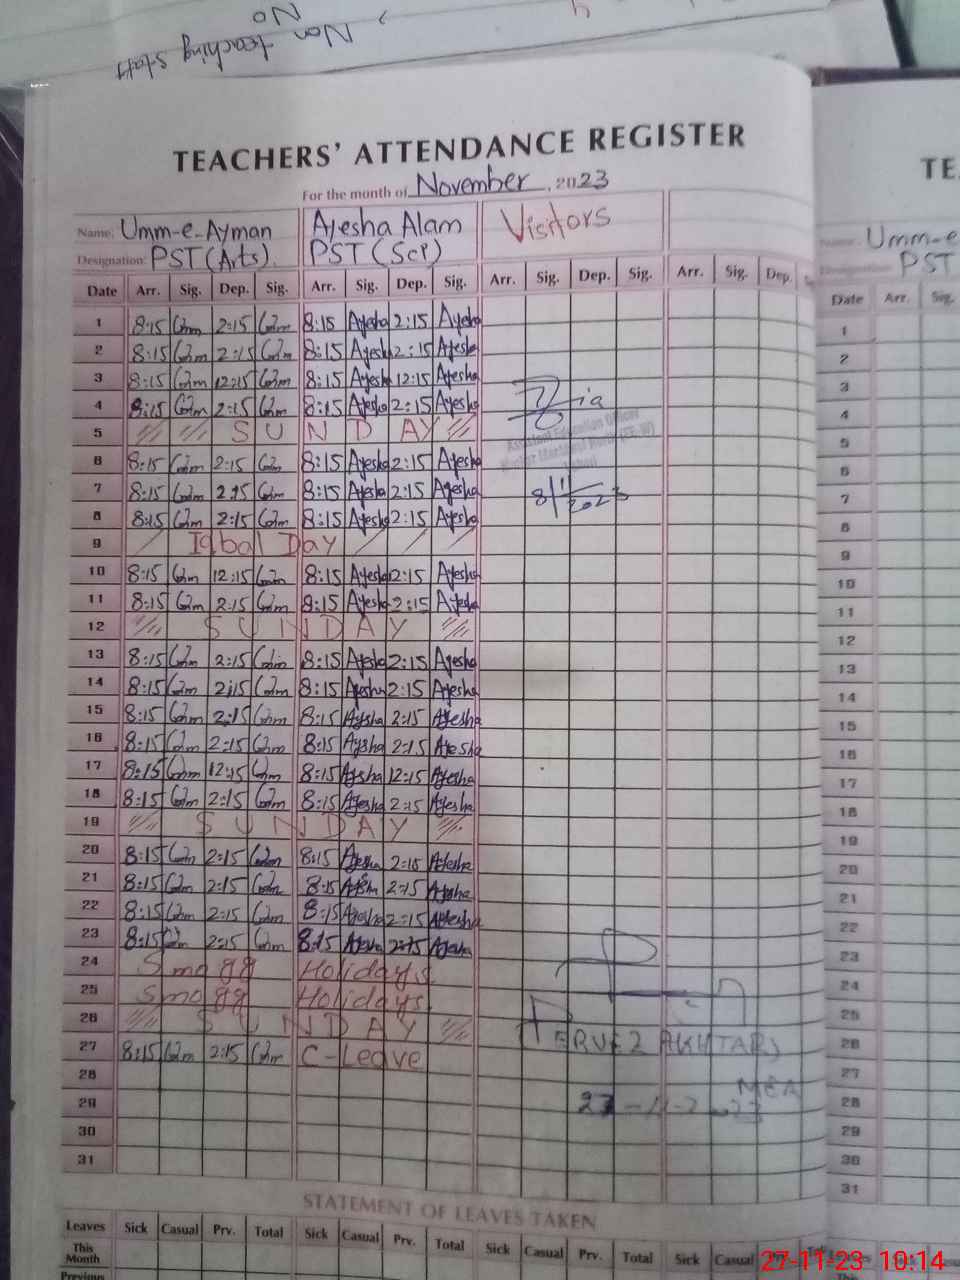 Non teaching staff
No
TEACHERS' ATTENDANCE REGISTER
For the month of November, 2023
Name: Umm-e-Ayman Ayesha Alam Visitors
Designation: PST (Arts) PST (Sci)
Date Arr. Sig. Dep. Sig. Arr. Sig. Dep. Sig. Arr. Sig. Dep. Sig. Arr. Sig. Dep.
1 8:15 2:15 8:15 Ayesha 2:15 Ayesha
2 8:15 2:15 8:15 Ayesha 2:15 Ayesha
3 8:15 12:15 8:15 Ayesha 12:15 Ayesha
4 8:15 2:15 8:15 Ayesha 2:15 Ayesha Zia
5 SUNDAY Assistant Education Officer
6 8:15 2:15 8:15 Ayesha 2:15 Ayesha
7 8:15 2:15 8:15 Ayesha 2:15 Ayesha 8/11/2023
8 8:15 2:15 8:15 Ayesha 2:15 Ayesha
9 Iqbal Day
10 8:15 12:15 8:15 Ayesha 12:15 Ayesha
11 8:15 2:15 8:15 Ayesha 2:15 Ayesha
12 SUNDAY
13 8:15 2:15 8:15 Ayesha 2:15 Ayesha
14 8:15 2:15 8:15 Ayesha 2:15 Ayesha
15 8:15 2:15 8:15 Aysha 2:15 Ayesha
16 8:15 2:15 8:15 Aysha 2:15 Ayesha
17 8:15 12:15 8:15 Aysha 12:15 Ayesha
18 8:15 2:15 8:15 Ayesha 2:15 Ayesha
19 SUNDAY
20 8:15 2:15 8:15 Ayesha 2:15 Ayesha
21 8:15 2:15 8:15 Ayesha 2:15 Ayesha
22 8:15 2:15 8:15 Ayesha 2:15 Ayesha
23 8:15 2:15 8:15 Ayesha 2:15 Ayesha
24 Smogg Holidays
25 Smogg Holidays
26 SUNDAY PERVEZ AKHTAR
27 8:15 2:15 C-Leave
28 MEA
29 27-11-2023
30
31
STATEMENT OF LEAVES TAKEN
Leaves Sick Casual Prv. Total Sick Casual Prv. Total Sick Casual Prv. Total Sick Casual Prv.
This Month
Previous
TE
Umm-e
Designation: PST
Date Arr. Sig.
1
2
3
4
5
6
7
8
9
10
11
12
13
14
15
16
17
18
19
20
21
22
23
24
25
26
27
28
29
30
31
27-11-23 10:14